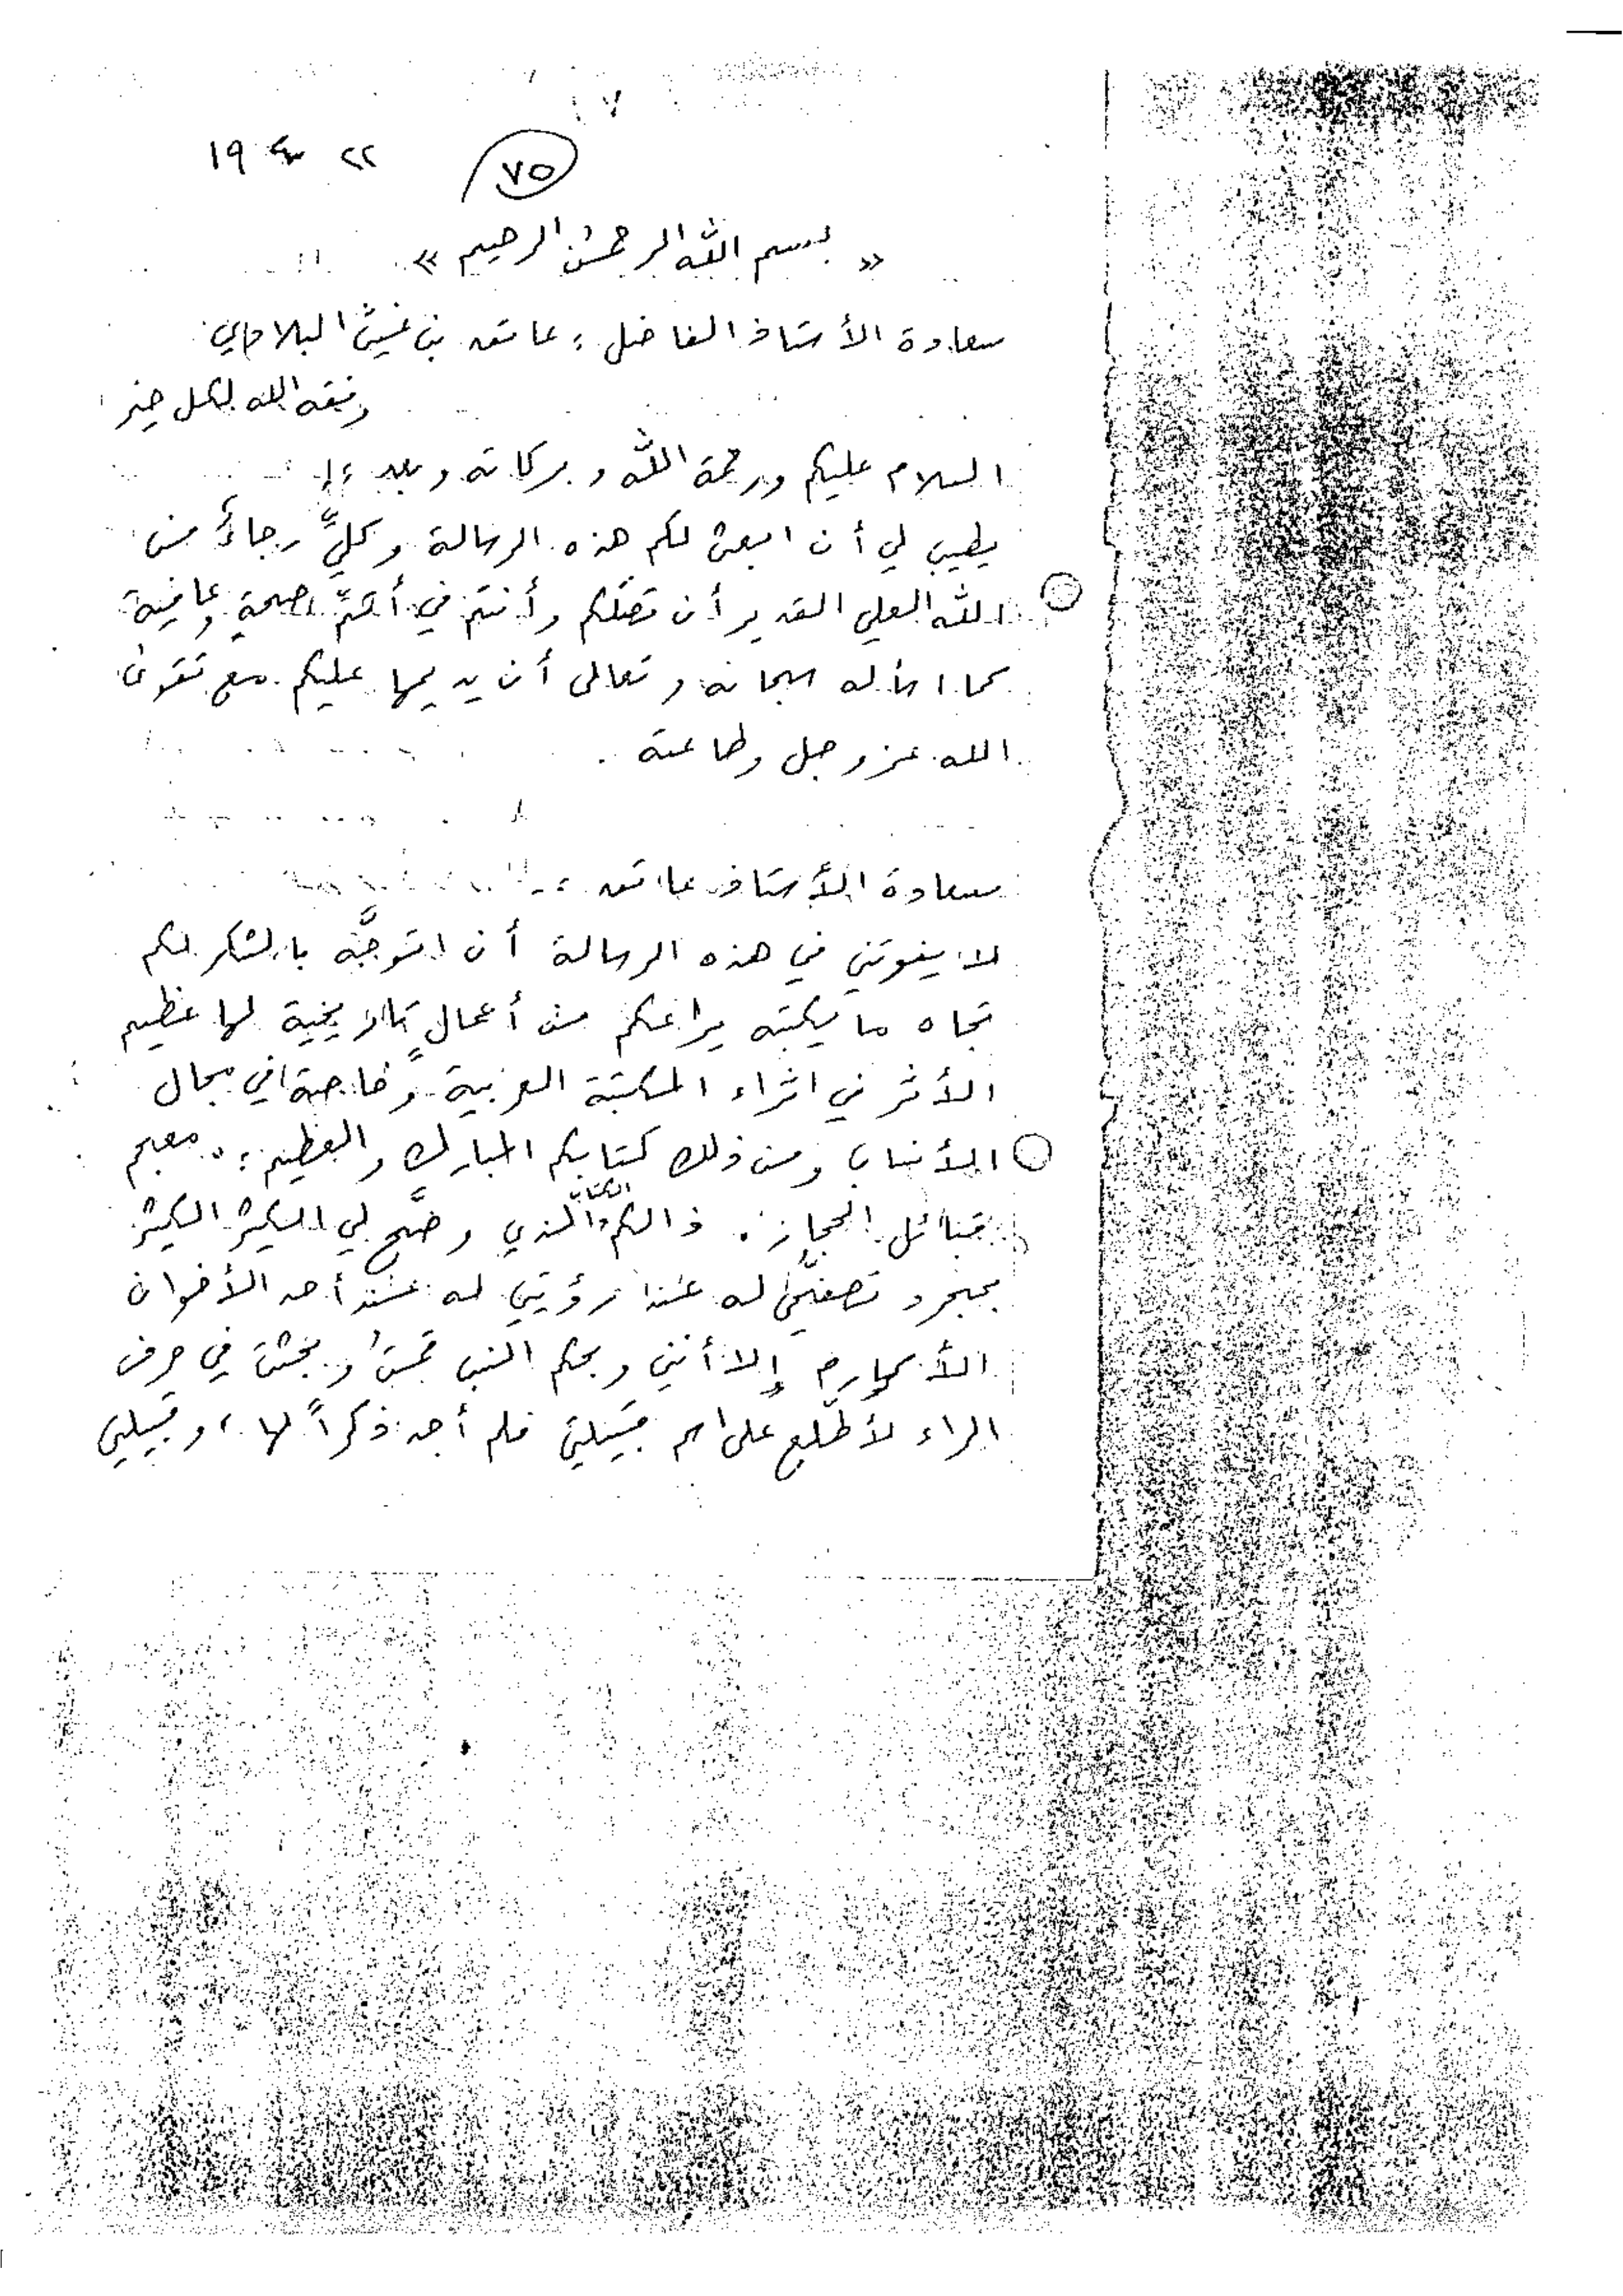 ٧٥
« بسم الله الرحمن الرحيم »
سعادة الأستاذ الفاضل : عاتق بن غيث البلادي
وفقه الله لكل خير
السلام عليكم ورحمة الله وبركاته وبعد :
يطيب لي أن ابعث لكم هذه الرسالة وكليَّ رجاءٌ من
الله العلي القدير أن تصلكم وأنتم في أتمَّ صحةٍ وعافية
كما اسأله سبحانه وتعالى أن يديمها عليكم مع تقوى
الله عز وجل وطاعته .
سعادة الأستاذ عاتق :
لا يفوتني في هذه الرسالة أن اتوجَّه بالشكر لكم
تجاه ما يكتبه يراعكم من أعمالٍ تاريخية لها عظيم
الأثر في اثراء المكتبة العربية وخاصةً في مجال
الأنساب ومن ذلك كتابكم المبارك والعظيم : معجم
قبائل الحجاز . ذالكم الكتاب الذي وضَّح لي الكثير الكثير
بمجرد تصفحي له عند رؤيتي له عند أحد الأخوان
الأكارم إلا أنني وبحكم النسب قمتُ وبحثت في حرف
الراء لأطَّلع على اسم قبيلتي فلم أجد ذكراً لها ، وقبيلتي